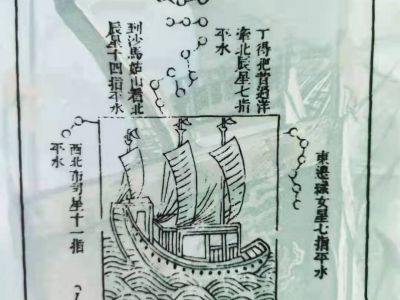 東邊織女星七指平水
丁得把昔過洋
牽北辰星七指
平水
到沙馬姑山看北
辰星十四指平水
西北布司星十一指
平水